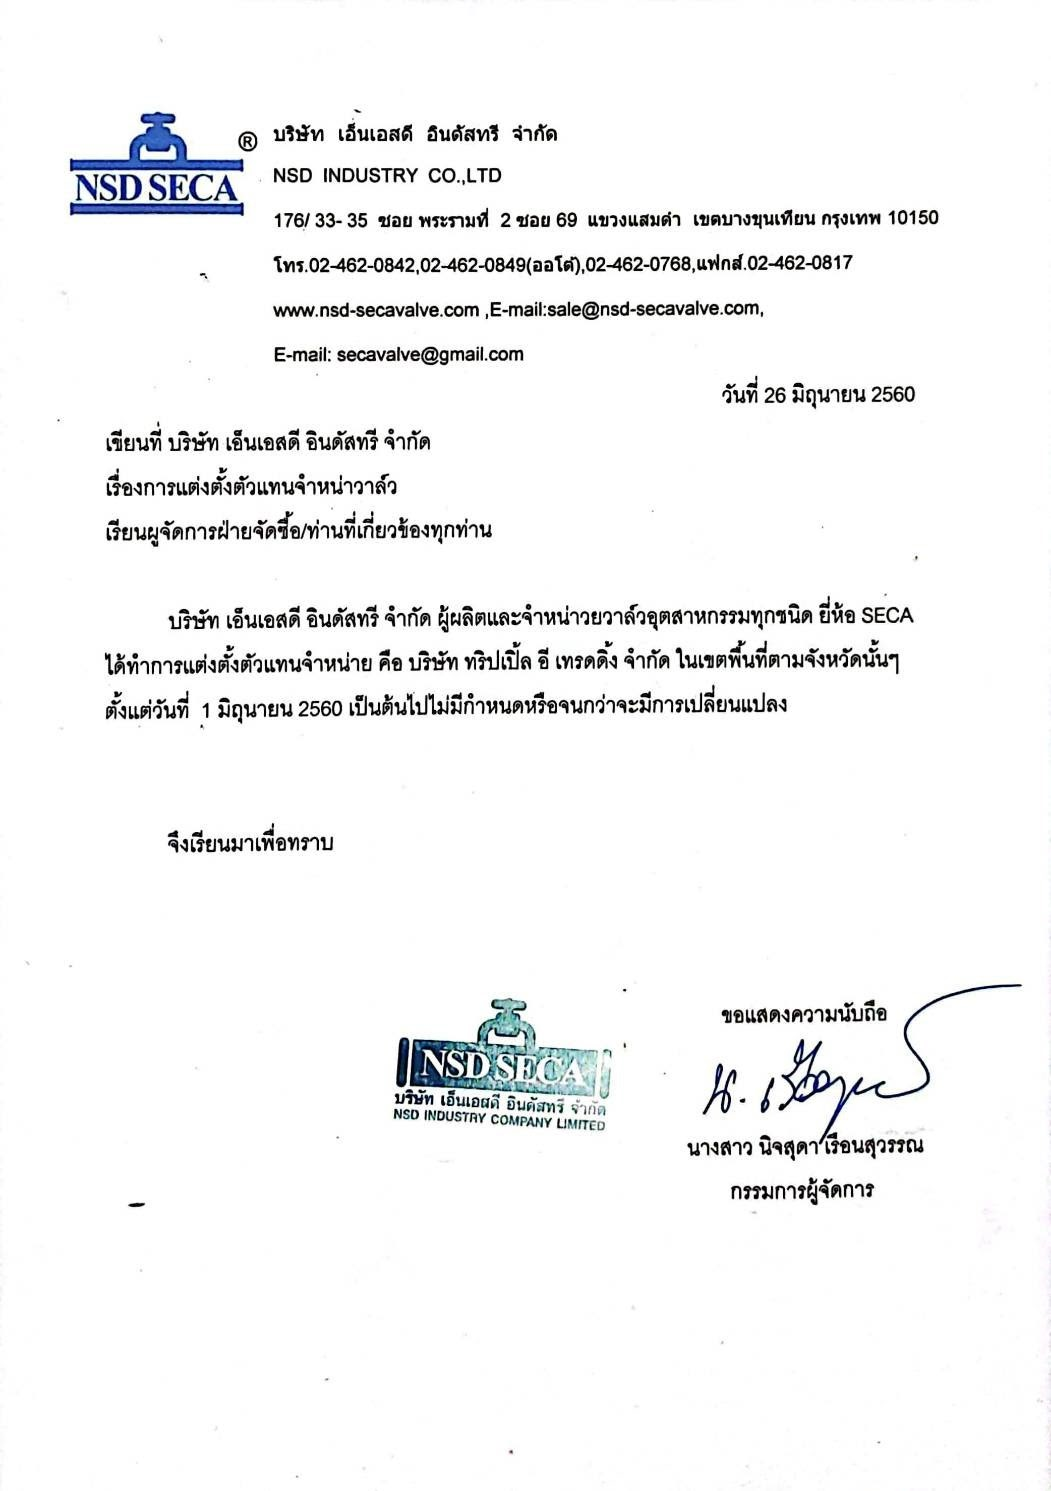 NSD SECA ®
บริษัท เอ็นเอสดี อินดัสทรี จำกัด
NSD INDUSTRY CO.,LTD
176/ 33- 35 ซอย พระรามที่ 2 ซอย 69 แขวงแสมดำ เขตบางขุนเทียน กรุงเทพ 10150
โทร.02-462-0842,02-462-0849(ออโต้),02-462-0768,แฟกส์.02-462-0817
www.nsd-secavalve.com ,E-mail:sale@nsd-secavalve.com,
E-mail: secavalve@gmail.com
วันที่ 26 มิถุนายน 2560
เขียนที่ บริษัท เอ็นเอสดี อินดัสทรี จำกัด
เรื่องการแต่งตั้งตัวแทนจำหน่าวาล์ว
เรียนผูจัดการฝ่ายจัดซื้อ/ท่านที่เกี่ยวข้องทุกท่าน
บริษัท เอ็นเอสดี อินดัสทรี จำกัด ผู้ผลิตและจำหน่าวยวาล์วอุตสาหกรรมทุกชนิด ยี่ห้อ SECA
ได้ทำการแต่งตั้งตัวแทนจำหน่าย คือ บริษัท ทริปเปิ้ล อี เทรดดิ้ง จำกัด ในเขตพื้นที่ตามจังหวัดนั้นๆ
ตั้งแต่วันที่ 1 มิถุนายน 2560 เป็นต้นไปไม่มีกำหนดหรือจนกว่าจะมีการเปลี่ยนแปลง
จึงเรียนมาเพื่อทราบ
ขอแสดงความนับถือ
NSD SECA
บริษัท เอ็นเอสดี อินดัสทรี จำกัด
NSD INDUSTRY COMPANY LIMITED
นางสาว นิจสุดา เรือนสุวรรณ
กรรมการผู้จัดการ